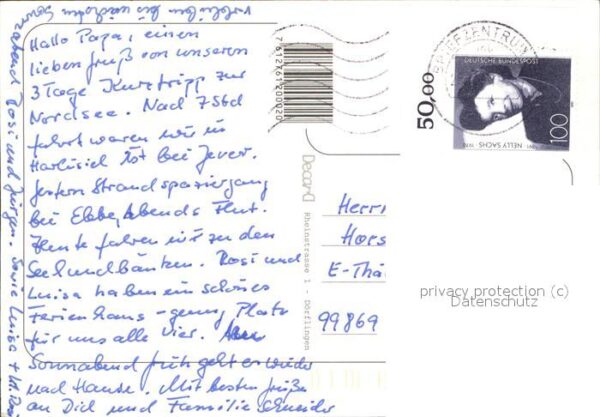 Hallo Papa, einen
lieben Gruß von unserem
3 Tage Kurztripp zur
Nordsee. Nach 7 Std
fahrt waren wir in
Harlesiel Ist bei Jever.
Gestern Strandspaziergang
bei Ebbe, Abends Flut.
Heute fahren wir zu den
Seehundbänken. Rosi und
Luisa haben ein schönes
Ferienhaus - genug Platz
für uns alle vier.
Sonnabend früh geht es wieder
nach Hause. Mit besten Grüßen
an Dich und Familie Schneider
Rosi und Jürgen. Sowie Luisa +
bis nächsten
Sonnabend
7612161200020
Decard
Rheinstrasse 1 - Dörflingen
BRIEFZENTRUM
50,00
DEUTSCHE BUNDESPOST
NELLY SACHS
100
Herrn
Hors
E-Thä
99869
privacy protection (c)
Datenschutz